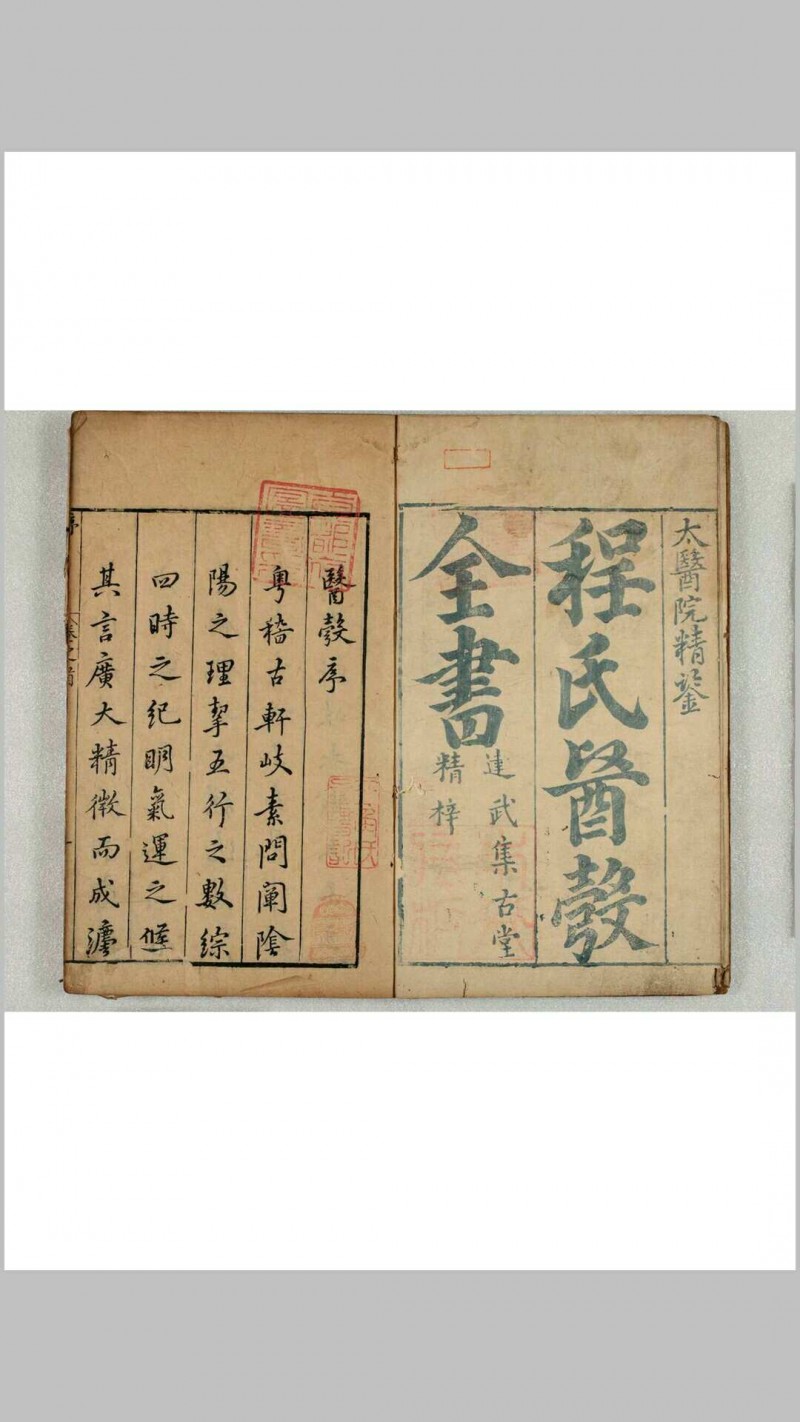 太醫院精鋻
程氏醫彀
全書
建武集古堂
精梓
醫彀序
粤稽古軒岐素問闡陰
陽之理挈五行之數綜
四時之紀明氣運之候
其言廣大精微而成濟
序
卷之首